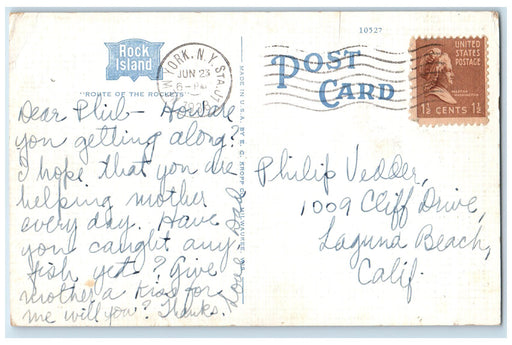 10527
Rock
Island
"ROUTE OF THE ROCKETS"
YORK, N.Y. STA.
JUN 23
6 - PM
POST
CARD
UNITED
STATES
POSTAGE
MARTHA
WASHINGTON
1½ CENTS 1½
MADE IN U.S.A. BY E. C. KROPP CO. MILWAUKEE
Dear Phil- How are
you getting along?
I hope that you are
helping mother
every day. Have
you caught any
fish yet? Give
mother a kiss for
me will you? Thanks.
Love Dad
Philip Vedder,
1009 Cliff Drive,
Laguna Beach,
Calif.